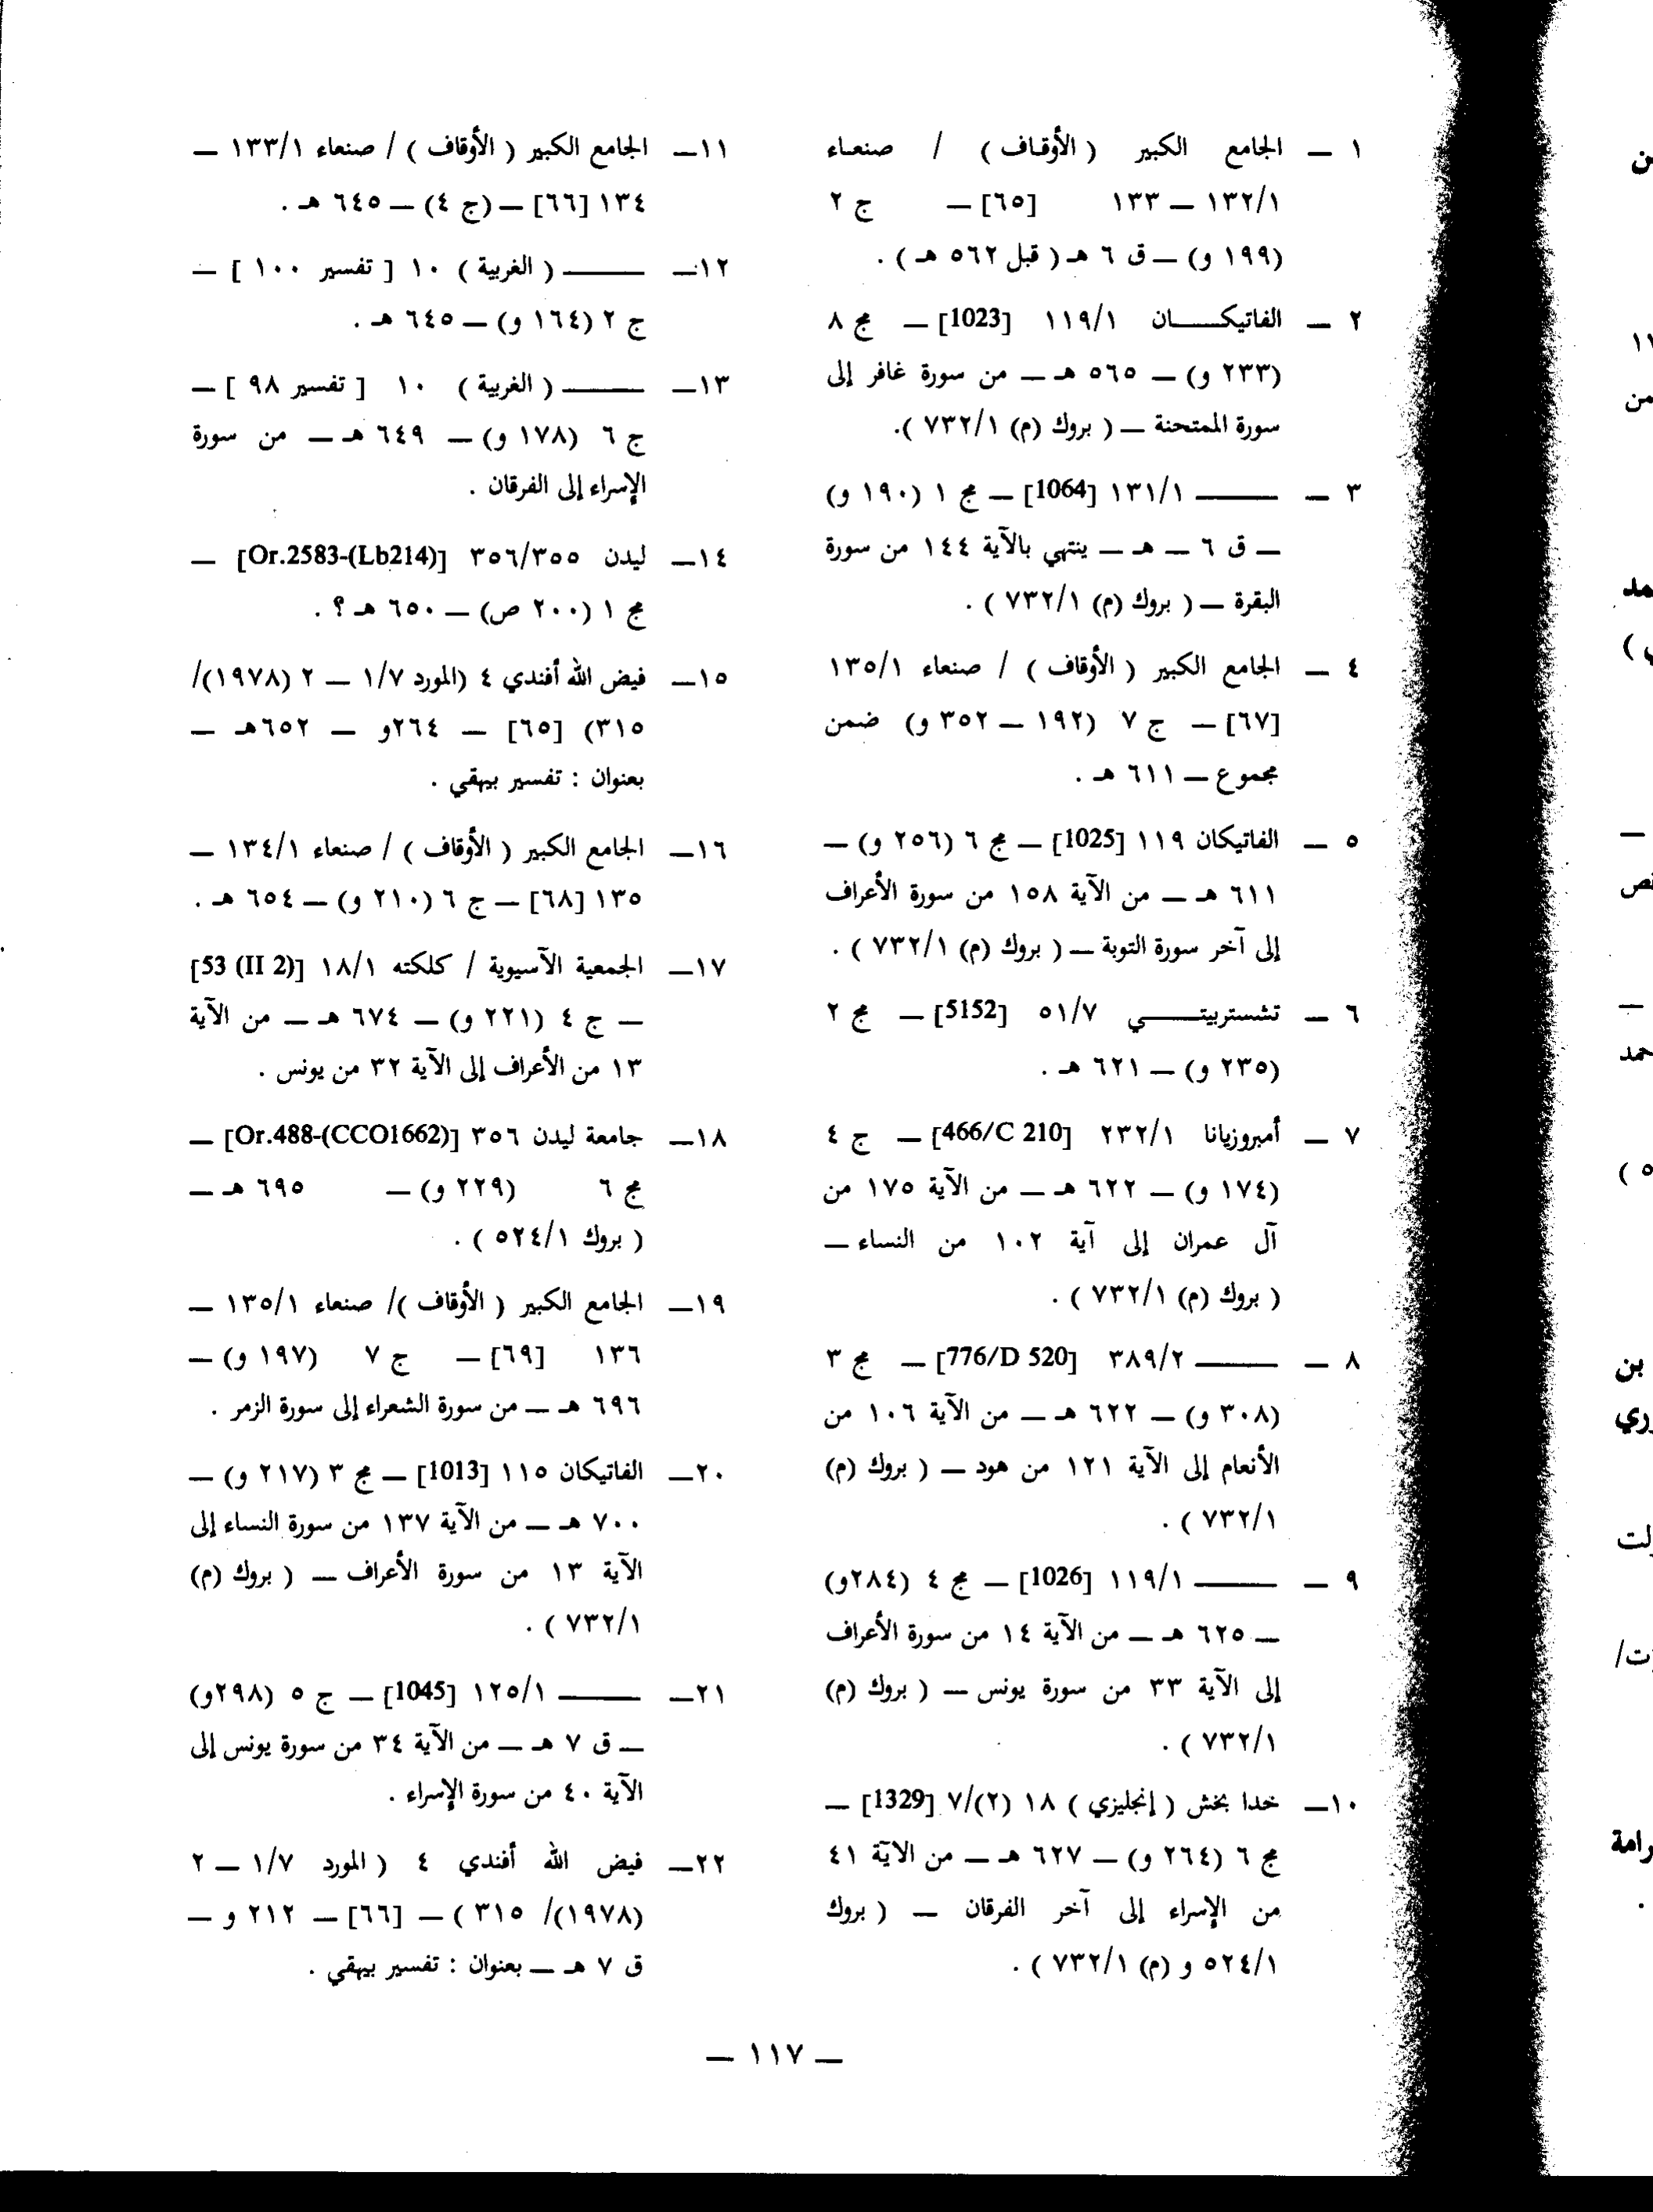 ١ — الجامع الكبير ( الأوقـاف ) / صنعـاء
١٣٢/١ — ١٣٣ [٦٥] — ج ٢
(١٩٩ و) — ق ٦ هـ ( قبل ٥٦٢ هـ ) .
٢ — الفاتيكـــــان ١١٩/١ [1023] — مج ٨
(٢٣٣ و) — ٥٦٥ هـ — من سورة غافر إلى
سورة الممتحنة — ( بروك (م) ٧٣٢/١ ).
٣ — ——— ١٣١/١ [1064] — مج ١ (١٩٠ و)
— ق ٦ — هـ — ينتهي بالآية ١٤٤ من سورة
البقرة — ( بروك (م) ٧٣٢/١ ) .
٤ — الجامع الكبير ( الأوقاف ) / صنعاء ١٣٥/١
[٦٧] — ج ٧ (١٩٢ — ٣٥٢ و) ضمن
مجموع — ٦١١ هـ .
٥ — الفاتيكان ١١٩ [1025] — مج ٦ (٢٥٦ و) —
٦١١ هـ — من الآية ١٥٨ من سورة الأعراف
إلى آخر سورة التوبة — ( بروك (م) ٧٣٢/١ ) .
٦ — تشستربيتـــــــي ٥١/٧ [5152] — مج ٢
(٢٣٥ و) — ٦٢١ هـ .
٧ — أمبروزيانا ٢٣٢/١ [466/C 210] — ج ٤
(١٧٤ و) — ٦٢٢ هـ — من الآية ١٧٥ من
آل عمران إلى آية ١٠٢ من النساء —
( بروك (م) ٧٣٢/١ ) .
٨ — ——— ٣٨٩/٢ [776/D 520] — مج ٣
(٣٠٨ و) — ٦٢٢ هـ — من الآية ١٠٦ من
الأنعام إلى الآية ١٢١ من هود — ( بروك (م)
٧٣٢/١ ) .
٩ — ——— ١١٩/١ [1026] — مج ٤ (٢٨٤و)
— ٦٢٥ هـ — من الآية ١٤ من سورة الأعراف
إلى الآية ٣٣ من سورة يونس — ( بروك (م)
٧٣٢/١ ) .
١٠— خدا بخش ( إنجليزي ) ١٨ (٢)/٧ [1329] —
مج ٦ (٢٦٤ و) — ٦٢٧ هـ — من الآية ٤١
من الإسراء إلى آخر الفرقان — ( بروك
٥٢٤/١ و (م) ٧٣٢/١ ) .
١١— الجامع الكبير ( الأوقاف ) / صنعاء ١٣٣/١ —
١٣٤ [٦٦] — (ج ٤) — ٦٤٥ هـ .
١٢— ——— ( الغربية ) ١٠ [ تفسير ١٠٠ ] —
ج ٢ (١٦٤ و) — ٦٤٥ هـ .
١٣— ——— ( الغربية ) ١٠ [ تفسير ٩٨ ] —
ج ٦ (١٧٨ و) — ٦٤٩ هـ — من سورة
الإسراء إلى الفرقان .
١٤— ليدن ٣٥٦/٣٥٥ [Or.2583-(Lb214)] —
مج ١ (٢٠٠ ص) — ٦٥٠ هـ ؟ .
١٥— فيض الله أفندي ٤ (المورد ١/٧ — ٢ (١٩٧٨)/
٣١٥) [٦٥] — ٢٦٤و — ٦٥٢هـ —
بعنوان : تفسير بيهقي .
١٦— الجامع الكبير ( الأوقاف ) / صنعاء ١٣٤/١ —
١٣٥ [٦٨] — ج ٦ (٢١٠ و) — ٦٥٤ هـ .
١٧— الجمعية الآسيوية / كلكته ١٨/١ [53 (II 2)]
— ج ٤ (٢٢١ و) — ٦٧٤ هـ — من الآية
١٣ من الأعراف إلى الآية ٣٢ من يونس .
١٨— جامعة ليدن ٣٥٦ [Or.488-(CCO1662)] —
مج ٦ (٢٢٩ و) — ٦٩٥ هـ —
( بروك ٥٢٤/١ ) .
١٩— الجامع الكبير ( الأوقاف )/ صنعاء ١٣٥/١ —
١٣٦ [٦٩] — ج ٧ (١٩٧ و) —
٦٩٦ هـ — من سورة الشعراء إلى سورة الزمر .
٢٠— الفاتيكان ١١٥ [1013] — مج ٣ (٢١٧ و) —
٧٠٠ هـ — من الآية ١٣٧ من سورة النساء إلى
الآية ١٣ من سورة الأعراف — ( بروك (م)
٧٣٢/١ ) .
٢١— ——— ١٢٥/١ [1045] — ج ٥ (٢٩٨و)
— ق ٧ هـ — من الآية ٣٤ من سورة يونس إلى
الآية ٤٠ من سورة الإسراء .
٢٢— فيض الله أفندي ٤ ( المورد ١/٧ — ٢
(١٩٧٨)/ ٣١٥ ) — [٦٦] — ٢١٢ و —
ق ٧ هـ — بعنوان : تفسير بيهقي .
— ١١٧ —